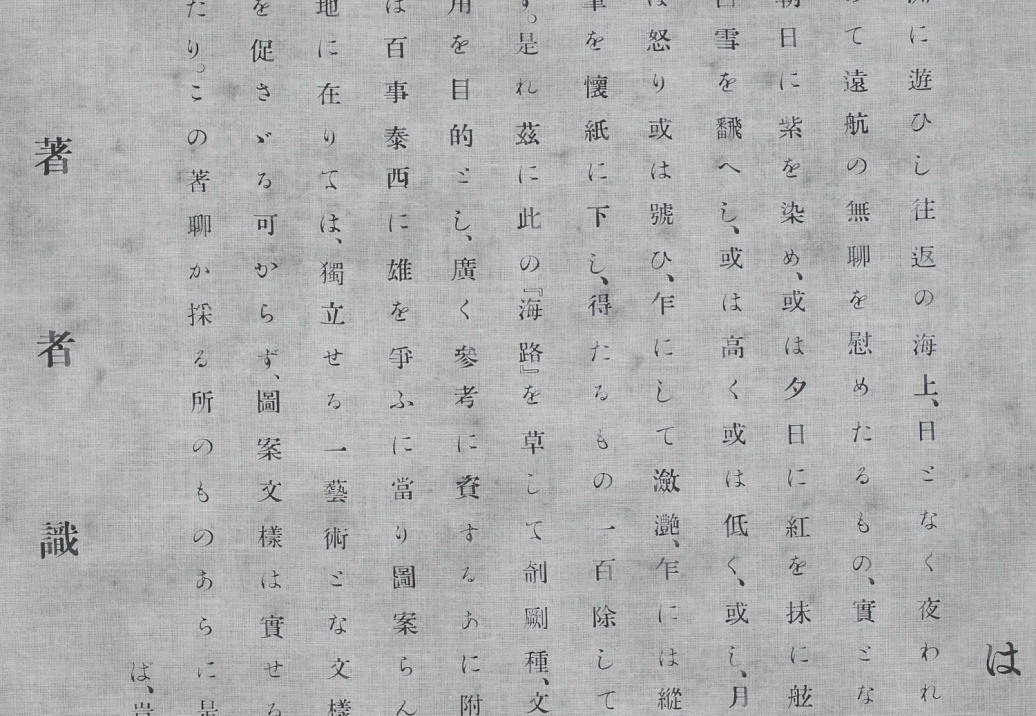 は
に遊ひし往返の海上、日となく夜われ
て遠航の無聊を慰めたるもの、實とな
日に紫を染め、或は夕日に紅を抹に舷
雪を飜へし、或は高く或は低く、或し、月
怒り或は號ひ、乍にして瀲灔、乍には縱
を懷紙に下し、得たるもの一百除して
す。是れ茲に此の『海路』を草して剞劂種、文
用を目的とし、廣く參考に資するあに附
は百事泰西に雄を爭ふに當り圖案らん
地に在りては、獨立せる一藝術とな文樣
を促さゞる可からず、圖案文樣は實せる
たり。この著聊か採る所のものあらに是
ば、豈
著者識